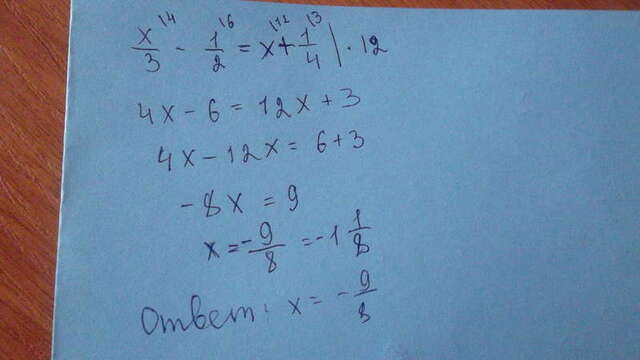 x/3 \4 - 1/2 \6 = x \12 + 1/4 \3 | · 12
4x - 6 = 12x + 3
4x - 12x = 6 + 3
-8x = 9
x = -9/8 = -1 1/8
Ответ: x = -9/8